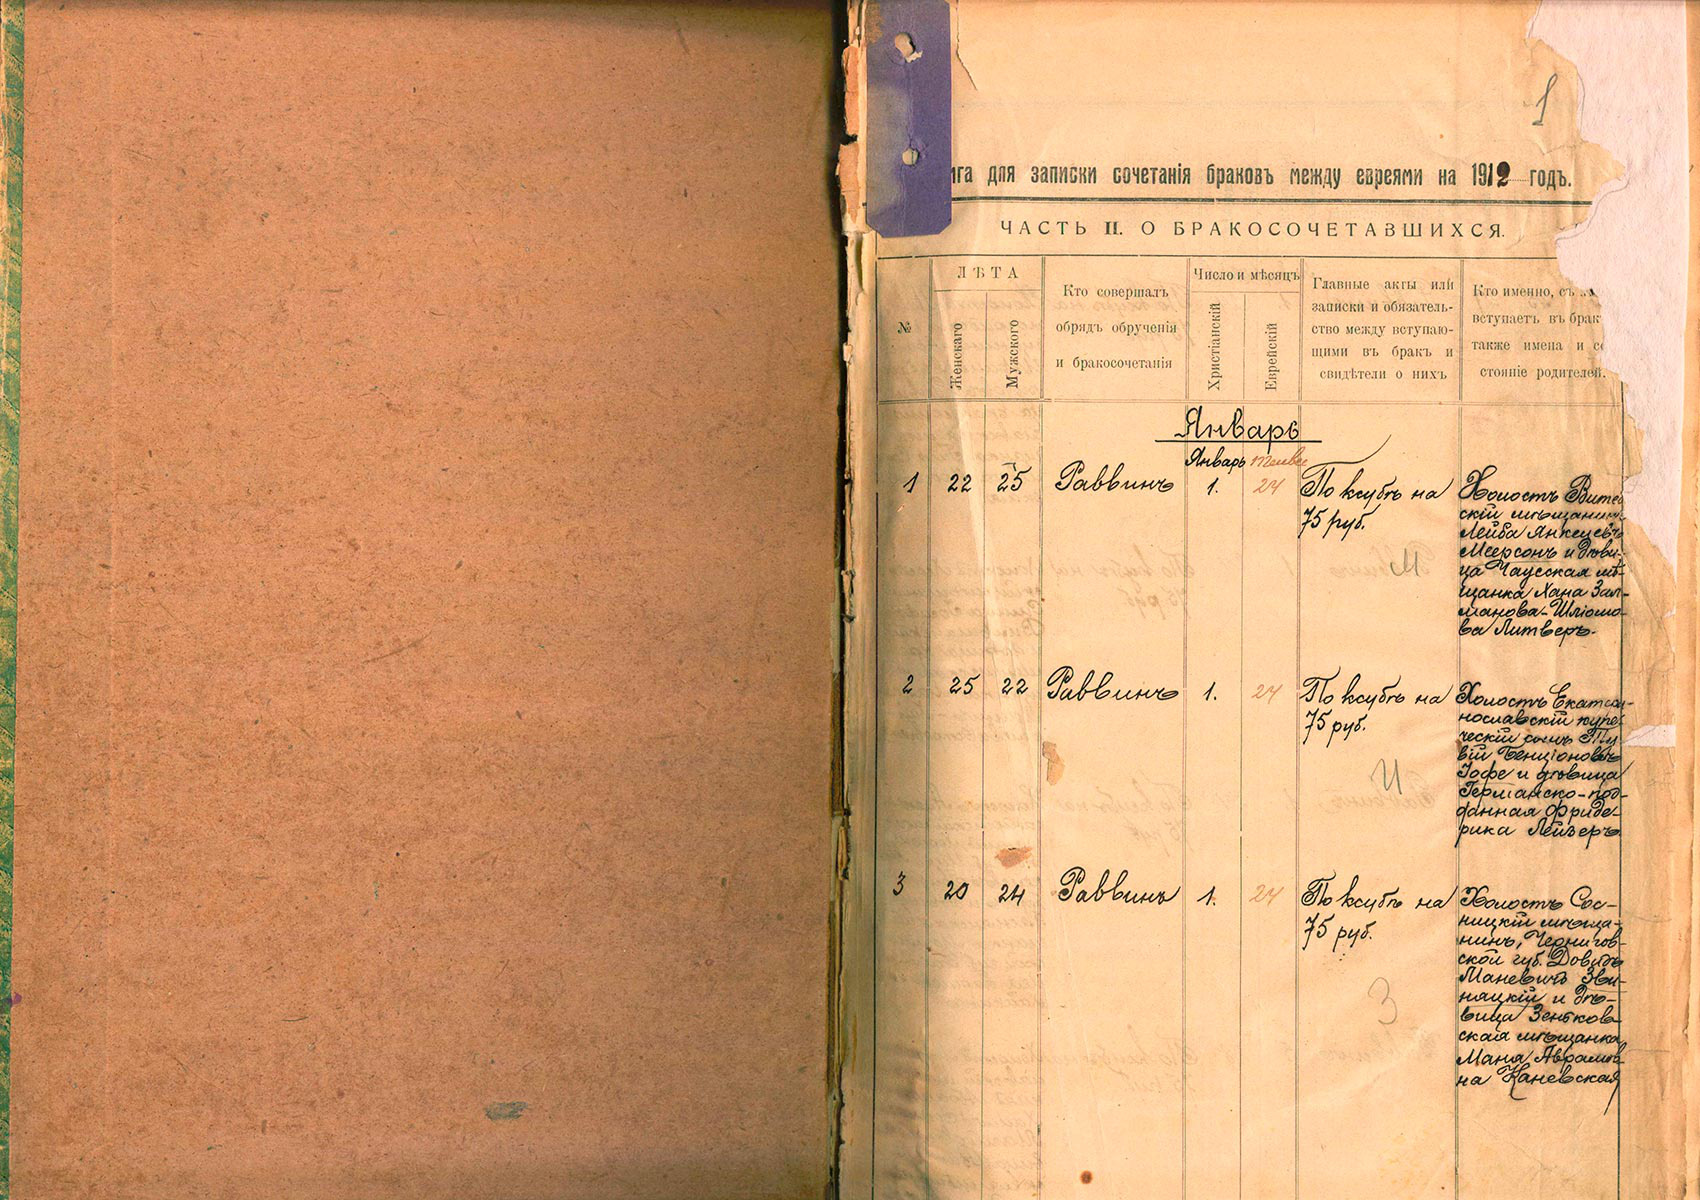 1
ига для записки сочетанія браковъ между евреями на 1912 годъ.
ЧАСТЬ II. О БРАКОСОЧЕТАВШИХСЯ.
№
ЛѢТА
Женскаго
Мужского
Кто совершалъ
обрядъ обрученія
и бракосочетанія
Число и мѣсяцъ
Христіанскій
Еврейскій
Главные акты или
записки и обязатель-
ство между вступаю-
щими въ бракъ и
свидѣтели о нихъ
Кто именно, съ
вступаетъ въ брак
также имена и со
стояніе родителей.
Январь
Январь
1 22 25 Раввинъ 1. 24
По ксубѣ на
75 руб.
Холостъ Витеб
скій мѣщанинъ
Лейба Янкелевъ
Меерсонъ и дѣви-
ца Чаусская мѣ-
щанка Хана Зал-
манова-Шліомо-
ва Литверъ.
М
2 25 22 Раввинъ 1. 24
По ксубѣ на
75 руб.
Холостъ Екатери-
нославскій купе-
ческій сынъ Ту-
вій Бенціоновъ
Іофе и дѣвица
Германско-под-
данная Фриде-
рика Лейзеръ
И
3 20 24 Раввинъ 1. 24
По ксубѣ на
75 руб.
Холостъ Сос-
ницкій мѣща-
нинъ, Чернигов-
ской губ. Довидъ
Маневичъ Зви-
няцкій и дѣ-
вица Зеньков-
ская мѣщанка
Маня Аврамов-
на Каневская
З